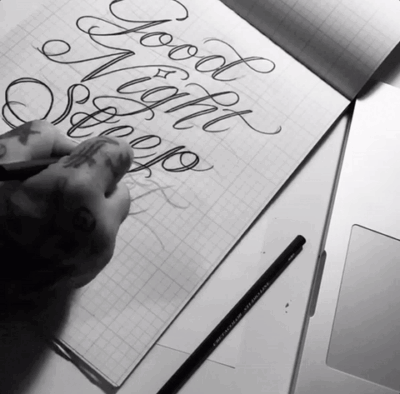 Good
Night
Sleep